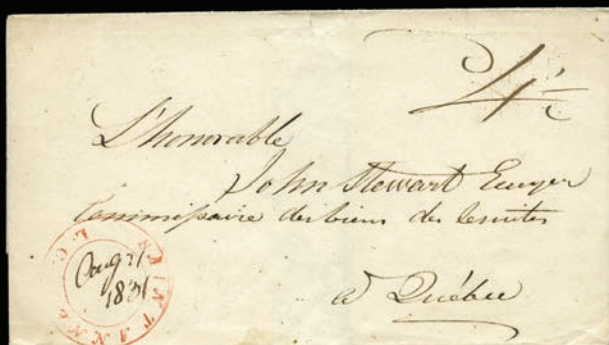 4½
L'honorable
John Stewart Ecuyer
Commissaire des biens des Jesuites
a Québec
SAINT ANNE L.C.
Aug 31
1831